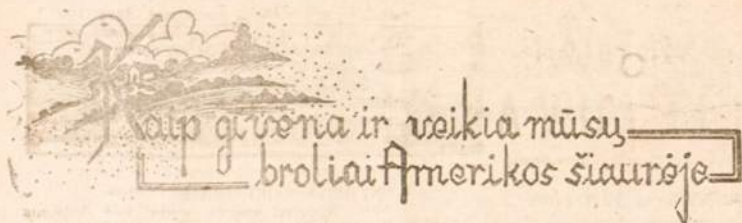 Kaip gyvena ir veikia mūsų
broliai Amerikos šiaurėje